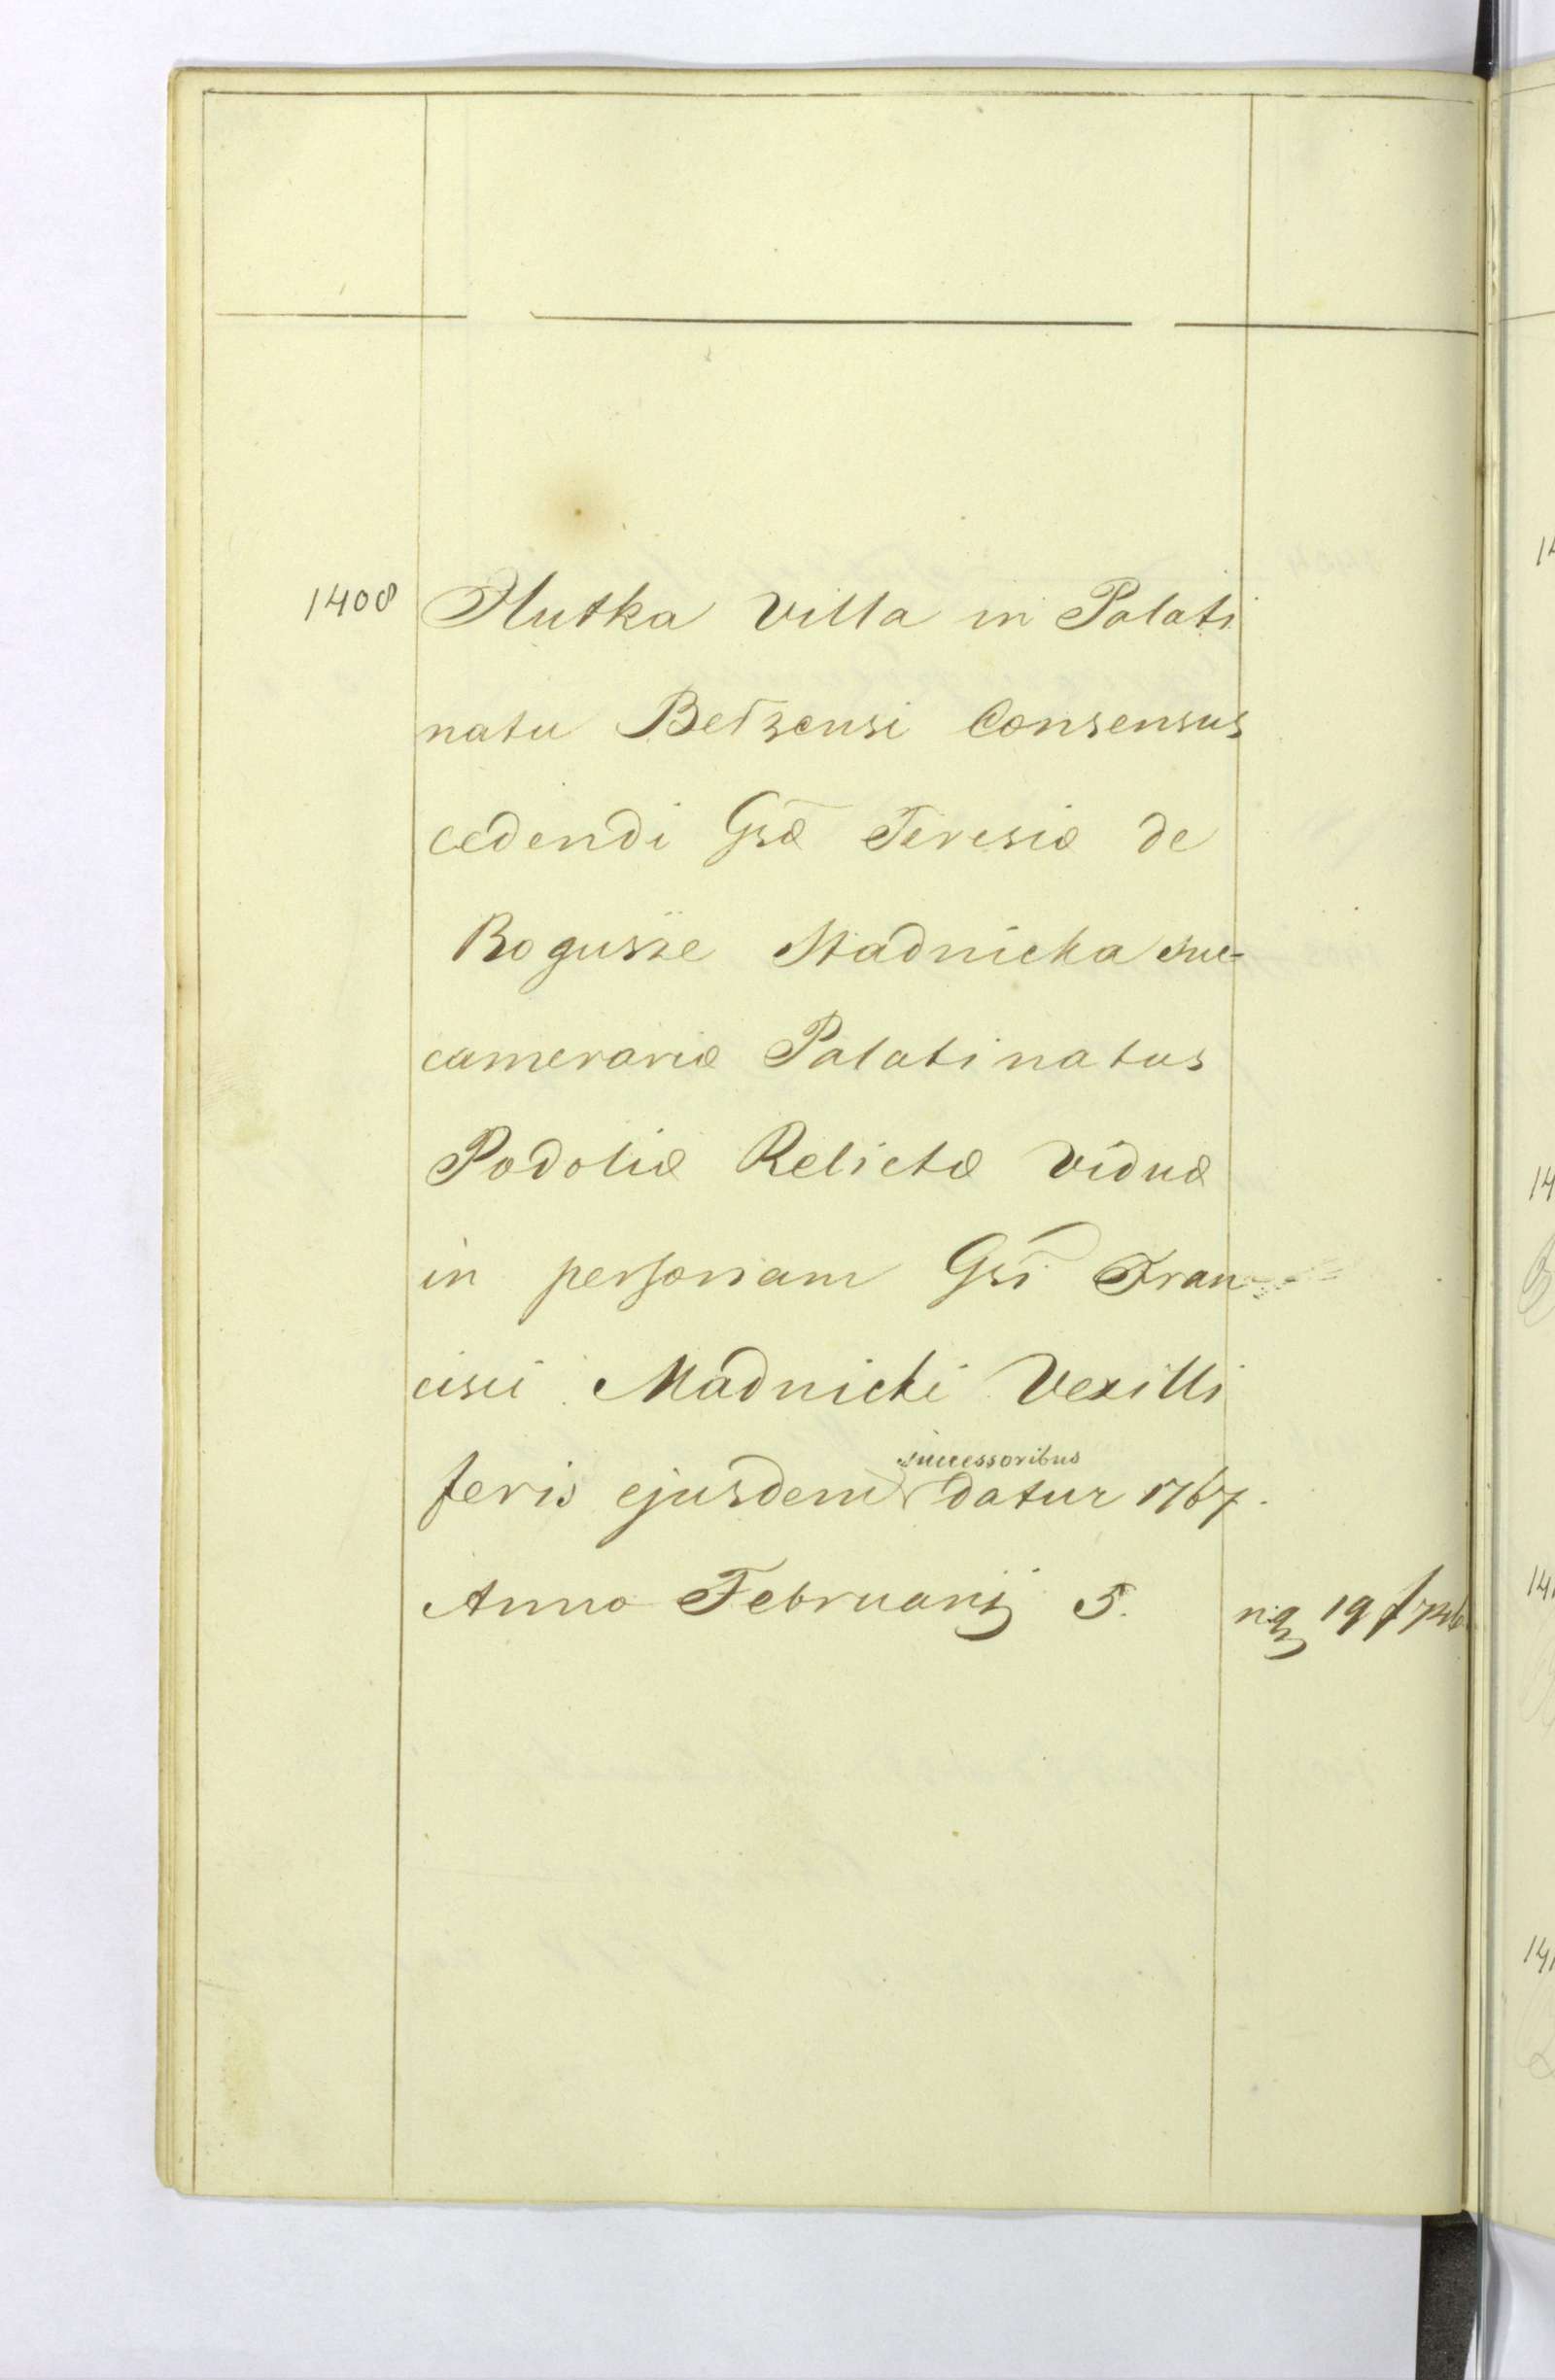 1408 Hutka Villa in Palati
natu Betzensi Consensus
cedendi Gsæ Teresiæ de
Bogusze Stadnicka suc-
camerariæ Palatinatus
Podoliæ Relictæ Viduæ
in personam Gsi Fran-
cisci Stadnicki Vexilli
feris ejusdem successoribus datur 1767.
Anno Februarij 5. 19 f